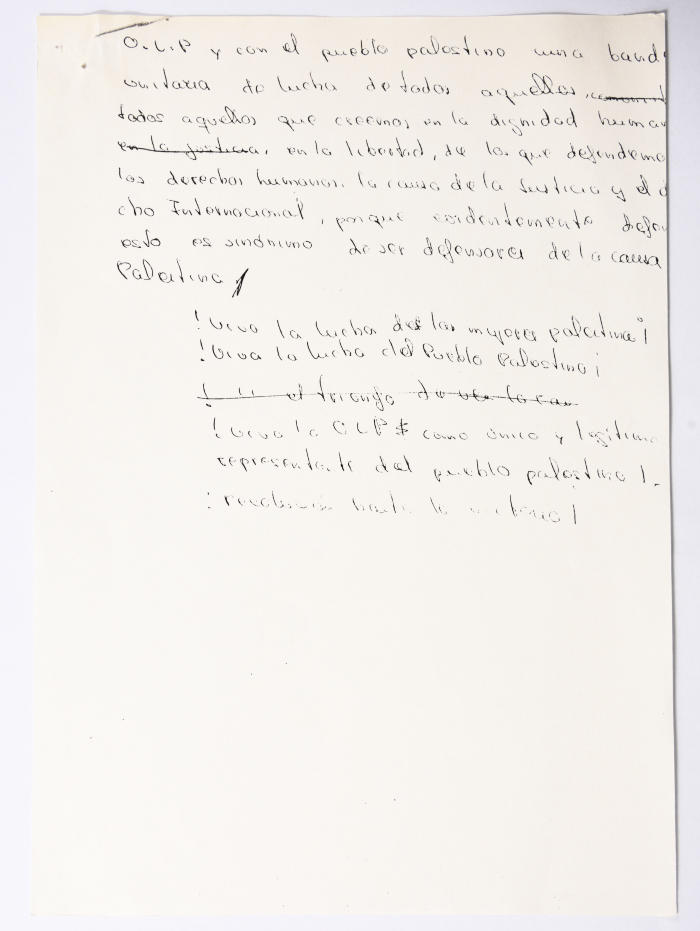 O.L.P y con el pueblo palestino una band
unitaria de lucha de todos aquellos,
todos aquellos que creemos en la dignidad human
en la justicia, en la libertad, de los que defendemo
los derechos humanos. la causa de la Justicia y el d
cho Internacional, porque evidentemente defen
esto es sinónimo de ser defensores de la causa
Palestina
! Viva la lucha de las mujeres palestinas!
! Viva la lucha del Pueblo Palestino ¡
! " el triunfo de
! Viva la OLP como único y legitimo
representante del pueblo palestino !.
! revolución hasta la victoria !